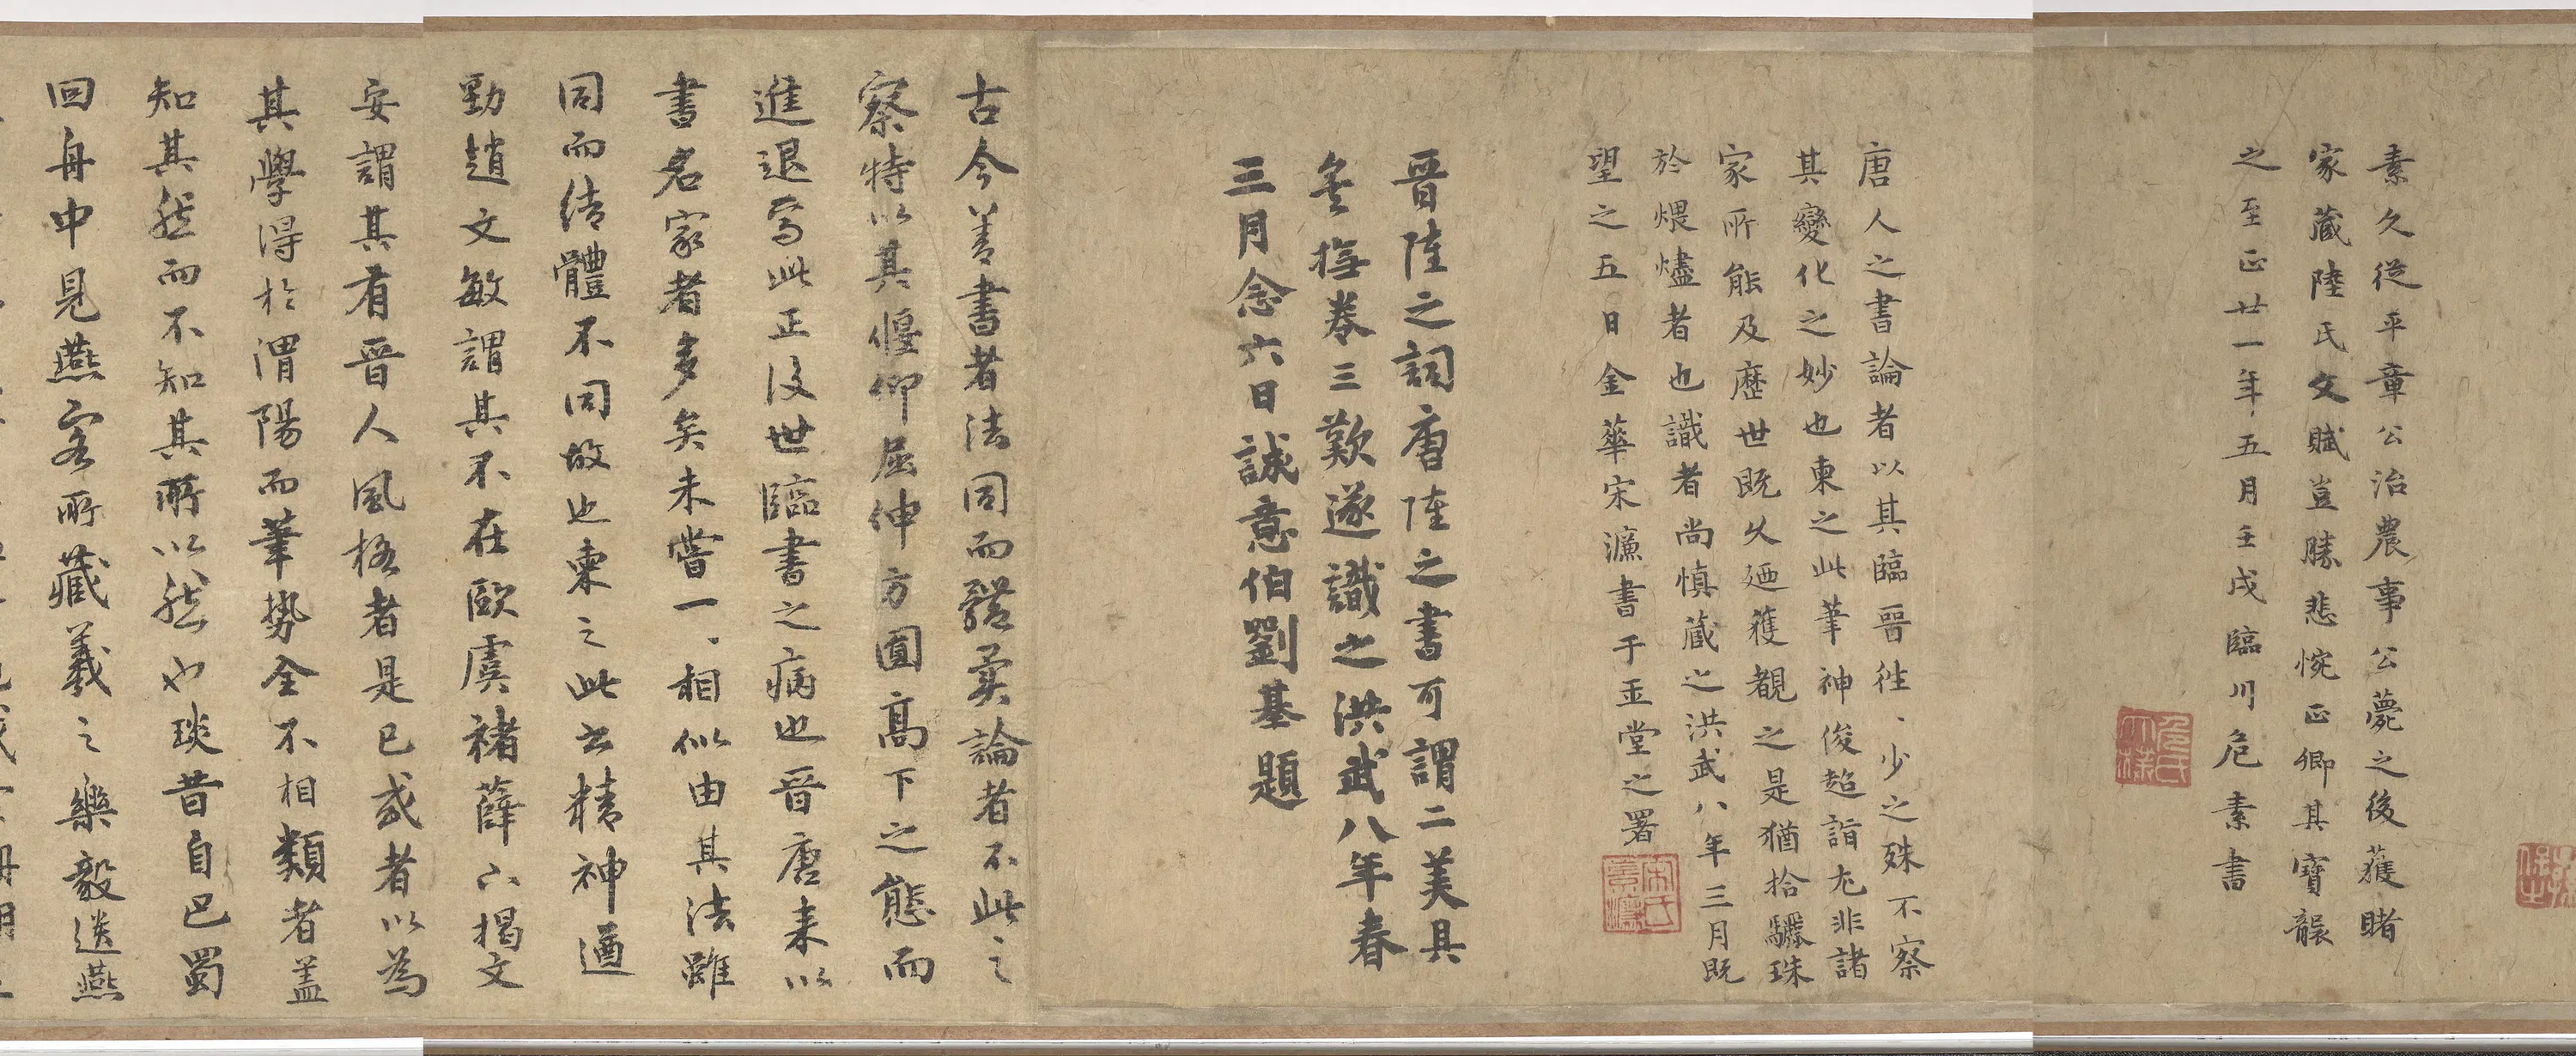 素久從平章公治農事公薨之後獲睹
家藏陸氏文賦豈勝悲惋正卿其寶襲
之至正廿一年五月壬戌臨川危素書
危氏太樸
唐人之書論者以其臨晉往、少之殊不察
其變化之妙也柬之此筆神俊超詣尤非諸
家所能及歷世既久迺獲覩之是猶拾驪珠
於煨燼者也識者尚慎藏之洪武八年三月既
望之五日金華宋濂書于玉堂之署
宋氏景濂
晉陸之詞唐陸之書可謂二美具
矣撫卷三歎遂識之洪武八年春
三月念六日誠意伯劉基題
古今善書者法同而體異論者不此之
察特以其偃仰屈伸方圓高下之態而
進退焉此正後世臨書之病也晉唐來以
書名家者多矣未嘗一、相似由其法雖
同而結體不同故也柬之此書精神遒
勁趙文敏謂其不在歐虞褚薛下揭文
安謂其有晉人風格者是已或者以為
其學得於渭陽而筆勢全不相類者盖
知其然而不知其所以然也琰昔自巴蜀
回舟中見燕客所藏羲之樂毅送燕